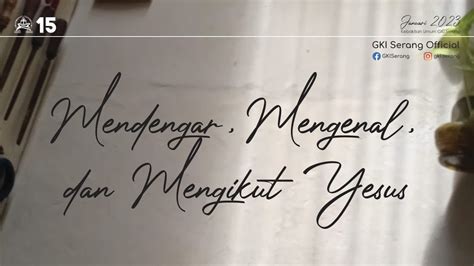 15
Januari 2023
Kebaktian Umum GKI Serang
GKI Serang Official
GKISerang
gki.serang
Mendengar, Mengenal,
dan Mengikut Yesus